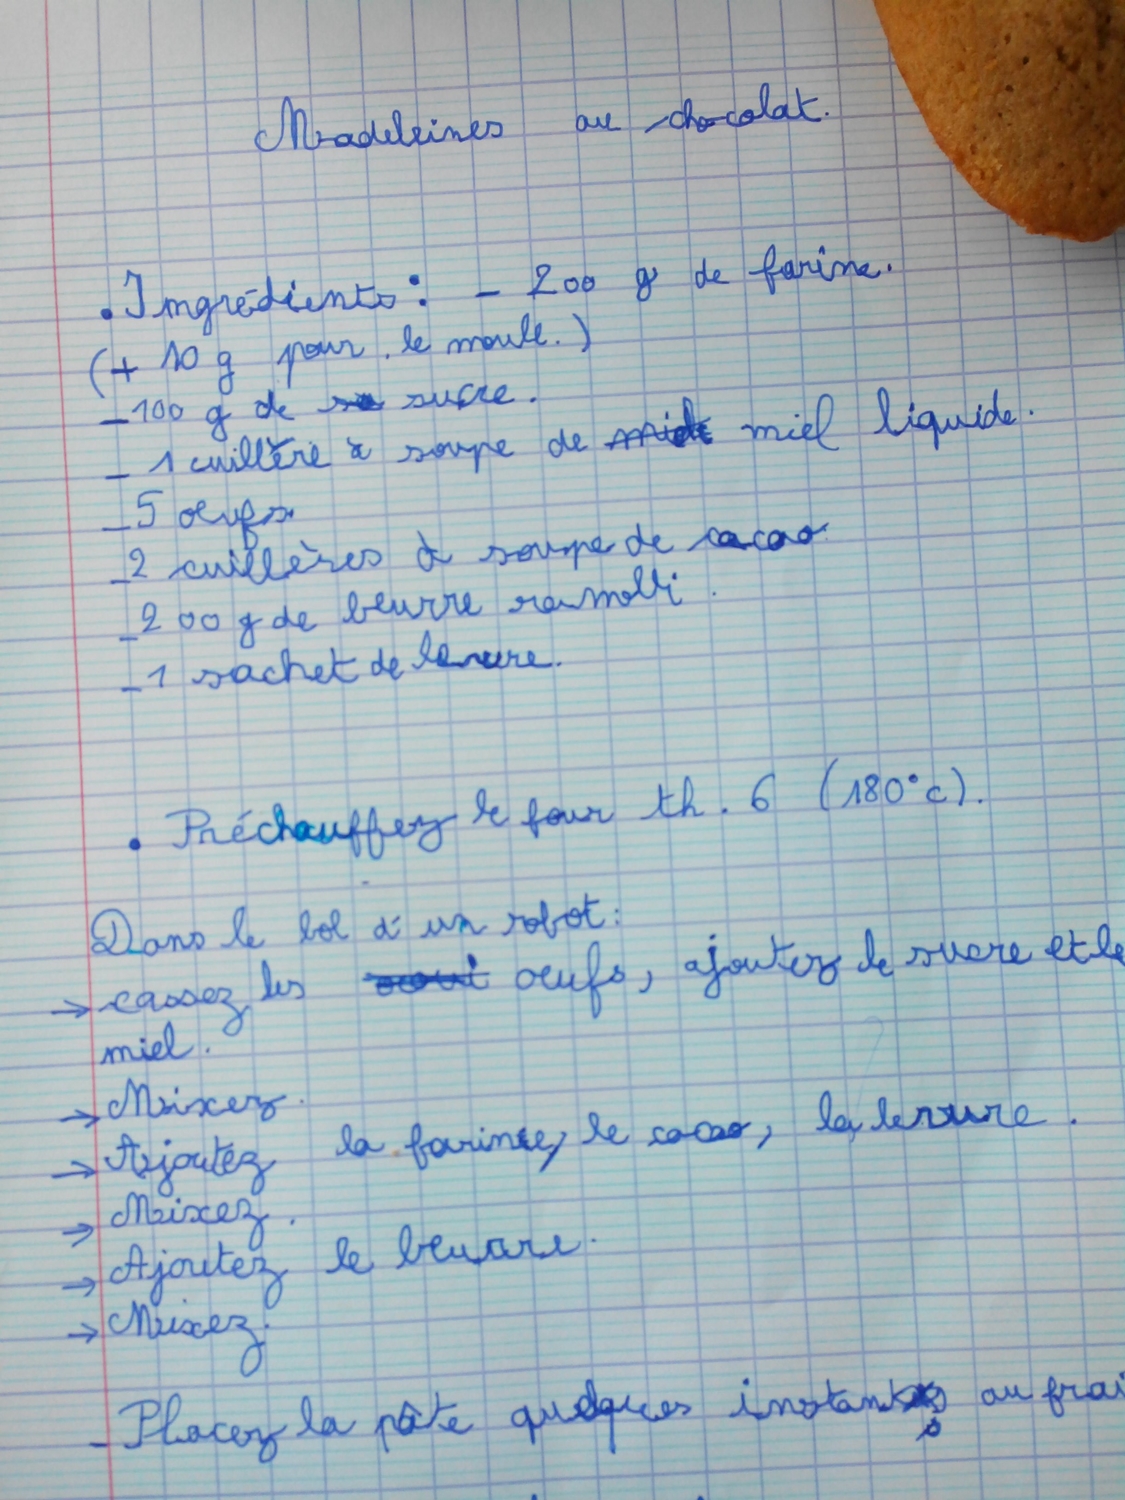 Madeleines au chocolat.
• Ingrédients : - 200 g de farine.
(+ 10 g pour le moule.)
- 100 g de sucre.
- 1 cuillère à soupe de miel liquide.
- 5 oeufs.
- 2 cuillères à soupe de cacao.
- 200 g de beurre ramolli.
- 1 sachet de levure.
• Préchauffez le four th. 6 (180°c).
Dans le bol d'un robot :
→ cassez les oeufs, ajoutez le sucre et le
miel.
→ Mixez.
→ Ajoutez la farine, le cacao, la levure.
→ Mixez.
→ Ajoutez le beurre.
→ Mixez.
- Placez la pâte quelques instants au frai